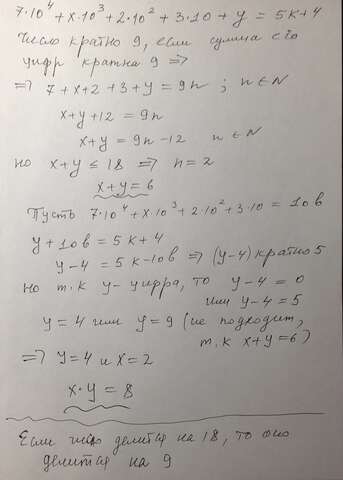 7·10⁴+x·10³+2·10²+3·10+y = 5k+4
Число кратно 9, если сумма его
цифр кратна 9 ⇒
⇒ 7+x+2+3+y=9n ; n∈N
x+y+12=9n
x+y=9n-12 n∈N
но x+y≤18 ⇒ n=2
x+y=6
Пусть 7·10⁴+x·10³+2·10²+3·10=10b
y+10b=5k+4
y-4=5k-10b ⇒ (y-4) кратно 5
Но т.к y-цифра, то y-4=0
или y-4=5
y=4 или y=9 (не подходит,
т.к x+y=6)
⇒ y=4 и x=2
x·y=8
Если число делится на 18, то оно
делится на 9